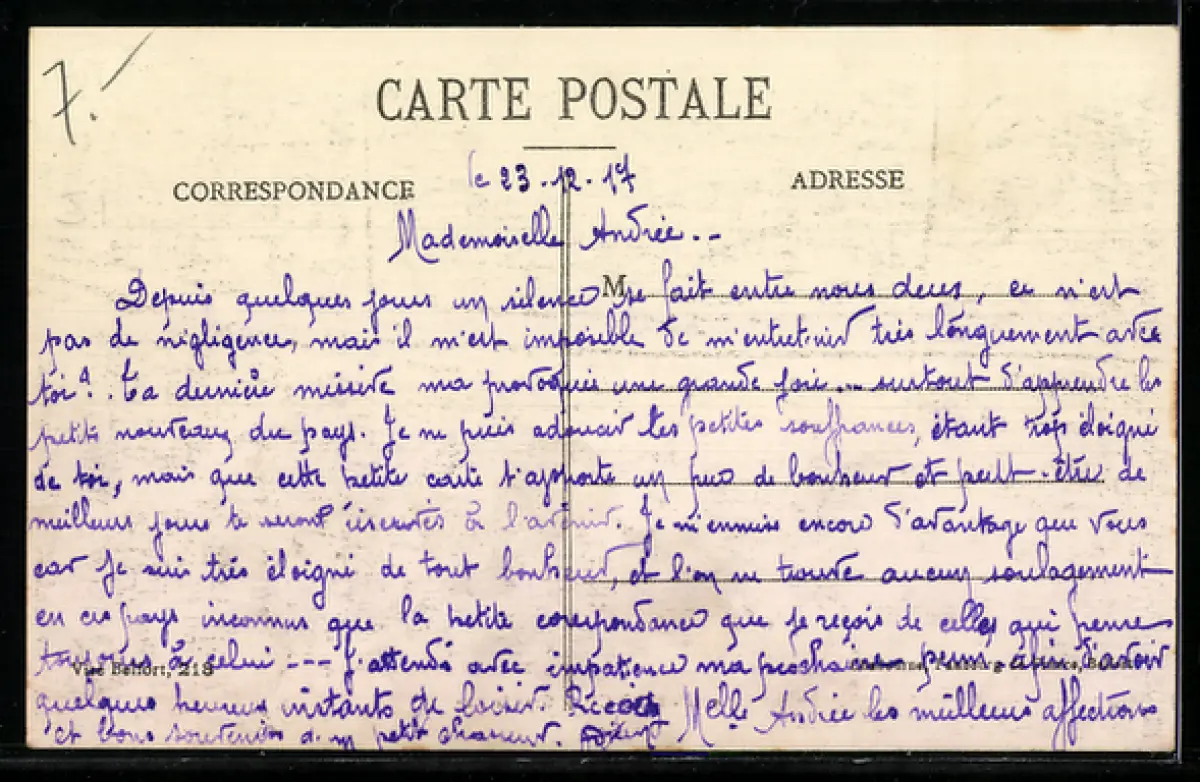 7.-
CARTE POSTALE
CORRESPONDANCE
ADRESSE
le 23-12-17
Mademoiselle Andrée..
M
Depuis quelques jours un silence se fait entre nous deux, ce n'est
pas de négligence, mais il m'est imposible de m'entretenir très longuement avec
toi. Ta dernière missive m'a provoquée une grande joie... surtout d'apprendre les
petits nouveaux du pays. Je ne puis adoucir tes petites souffrances, étant trop éloigné
de toi, mais que cette petite carte t'apporte un peu de bonheur et peut-être de
meilleurs jours te seront réservés à l'avenir. Je m'ennuie encore d'avantage que vous
car je suis très éloigné de tout bonheur, et l'on ne trouve aucun soulagement
en ces pays inconnus que la petite correspondance que je reçois de celles qui pense
toujours à celui --- J'attends avec impatience ma prochaine perm. afin d'avoir
Vise Belfort, 213
quelques heureux instants de loisir. Recois Melle Andrée les meilleurs affections
et bons souvenirs d'un petit chasseur.